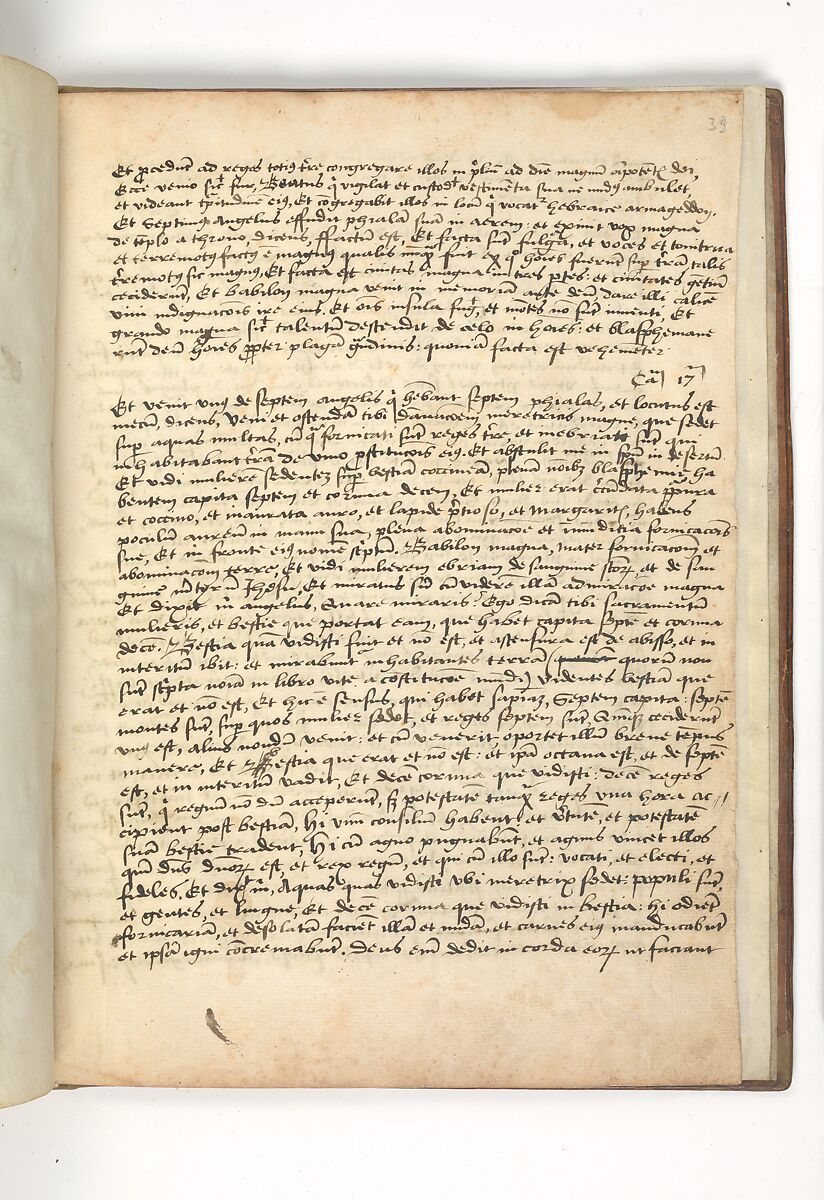 39
Et ꝓcedūt ad reges totiꝰ t̄re congregare illos in p̄liū ad diē magnū oīpotētꝭ dei,
Ecce venio sic̄ fur, Beatus q̄ vigilat et custodit vestimenta sua ne nudꝰ ambulet,
et videant tp̄itudinē eiꝰ, Et cōgregabit illos in locū q̄ vocatʳ hebraice armageddon.
Et Septimꝰ Angelus effudit phialā suā in aerem: et exiuit vox magna
de tēplo a throno, dicens, ffactum est, Et facta sūt fulgᵃ, et voces et tonitrua
et terremotꝰ factꝰ ē magnꝰ qualis nūqᵃ fuit ex q̊ hoīes fuerūt sup̄ t̄rā, talis
t̄remotꝰ sic magnꝰ, Et facta est ciuitas magna in tres ptes: et ciuitates gētiū
ceciderūt, Et Babilon magna venit in memoriā ante deū dare illi calicē
vini indignacōis ire eius, Et oīs insula fugit, et mōtes nō sūt inuenti, Et
grando magna sic̄ talentum descendit de celo in hoīes: et blasphemaue
rūt deū hoīes ꝓpter plagā gᵃndinis: quoniā facta est vehemēter.
Ca 17
Et venit vnꝰ de septem angelis q̄ hēbant septem phialas, et locutus est
mecū, dicens, Veni et ostendā tibi damnacōem meretricis magne, que sedet
sup̄ aquas multas, cū qᵃ fornicati sūt reges t̄re, et inebriati sūt qui
inhabitabant t̄rā de vino ꝓstitucōis eiꝰ. Et abstulit me in sp̄u in desertū.
Et vidi mulierē sedentez sup̄ bestiā coccineā, plenā noībꝫ blasphemie, ha
bentem capita septem et cornua decem, Et mulier erat circūdata purpura
et coccino, et inaurata auro, et lapide p̄tioso, et Margaritꝭ, habens
poculū aureū in manu sua, plenū abominacōe et inmūditia fornicacōis
sue, Et in fronte eiꝰ nomē sc̄ptū. Babilon magna, mater fornicacōm et
abominacōm terre, Et vidi mulierem ebriam de sanguine sc̄oꝝ, et de san
guine m̄tyrū Jhesu, Et miratus sū cū vidērē illā admiracōe magna
Et dixit m̄ angelus, Quare miraris? Ego dicā tibi sacramentū
mulieris, et bestie que portat eam, que habet capita septē et cornua
decē. Bestia quā vidisti fuit et nō est, et ascensura est de abisso, et in
interitū ibit: et mirabunt inhabitantes terrā (quorū non
sūt sc̄pta noīa in libro vite a cōstitucōe mūdi) Videntes bestiā que
erat et nō est, Et hic ē sensus, qui habet sapīaz, Septem capita: septē
montes sūt, sup̄ quos mulier sedet, et reges septem sūt, Quinqꝫ ceciderūt
vnꝰ est, alius nondū venit: et cū venerit oportet illū breue tēpus
manere, Et Bestia que erat et nō est: et ipā octaua est, et de septē
est, et in interitū vadit, Et decē cornua que vidisti: decē reges
sūt, q̄ regnū nō dū acceperūt, sꝫ potestatē tanqᵃ reges vna hora ac
cipient post bestiā, Hi vnū consiliū habent et v̄tutē, et potestatē
suā bestie tradent, Hi cū agno pugnabūt, et agnus vincet illos
qm̄ dn̄s dn̄oꝝ est, et rex regū, et qui cū illo sūt: vocati, et electi, et
fideles. Et dixit m̄, Aquas quas vidisti vbi meretrix sedet: populi sūt,
et gentes, et lingue, Et decē cornua que vidisti in bestia: hi odiēt
fornicariā, et desolatā faciēt illā et nudā, et carnes eiꝰ manducabūt
et ipsā igni cōcremabūt. Deus enī dedit in corda eoꝝ ut faciant